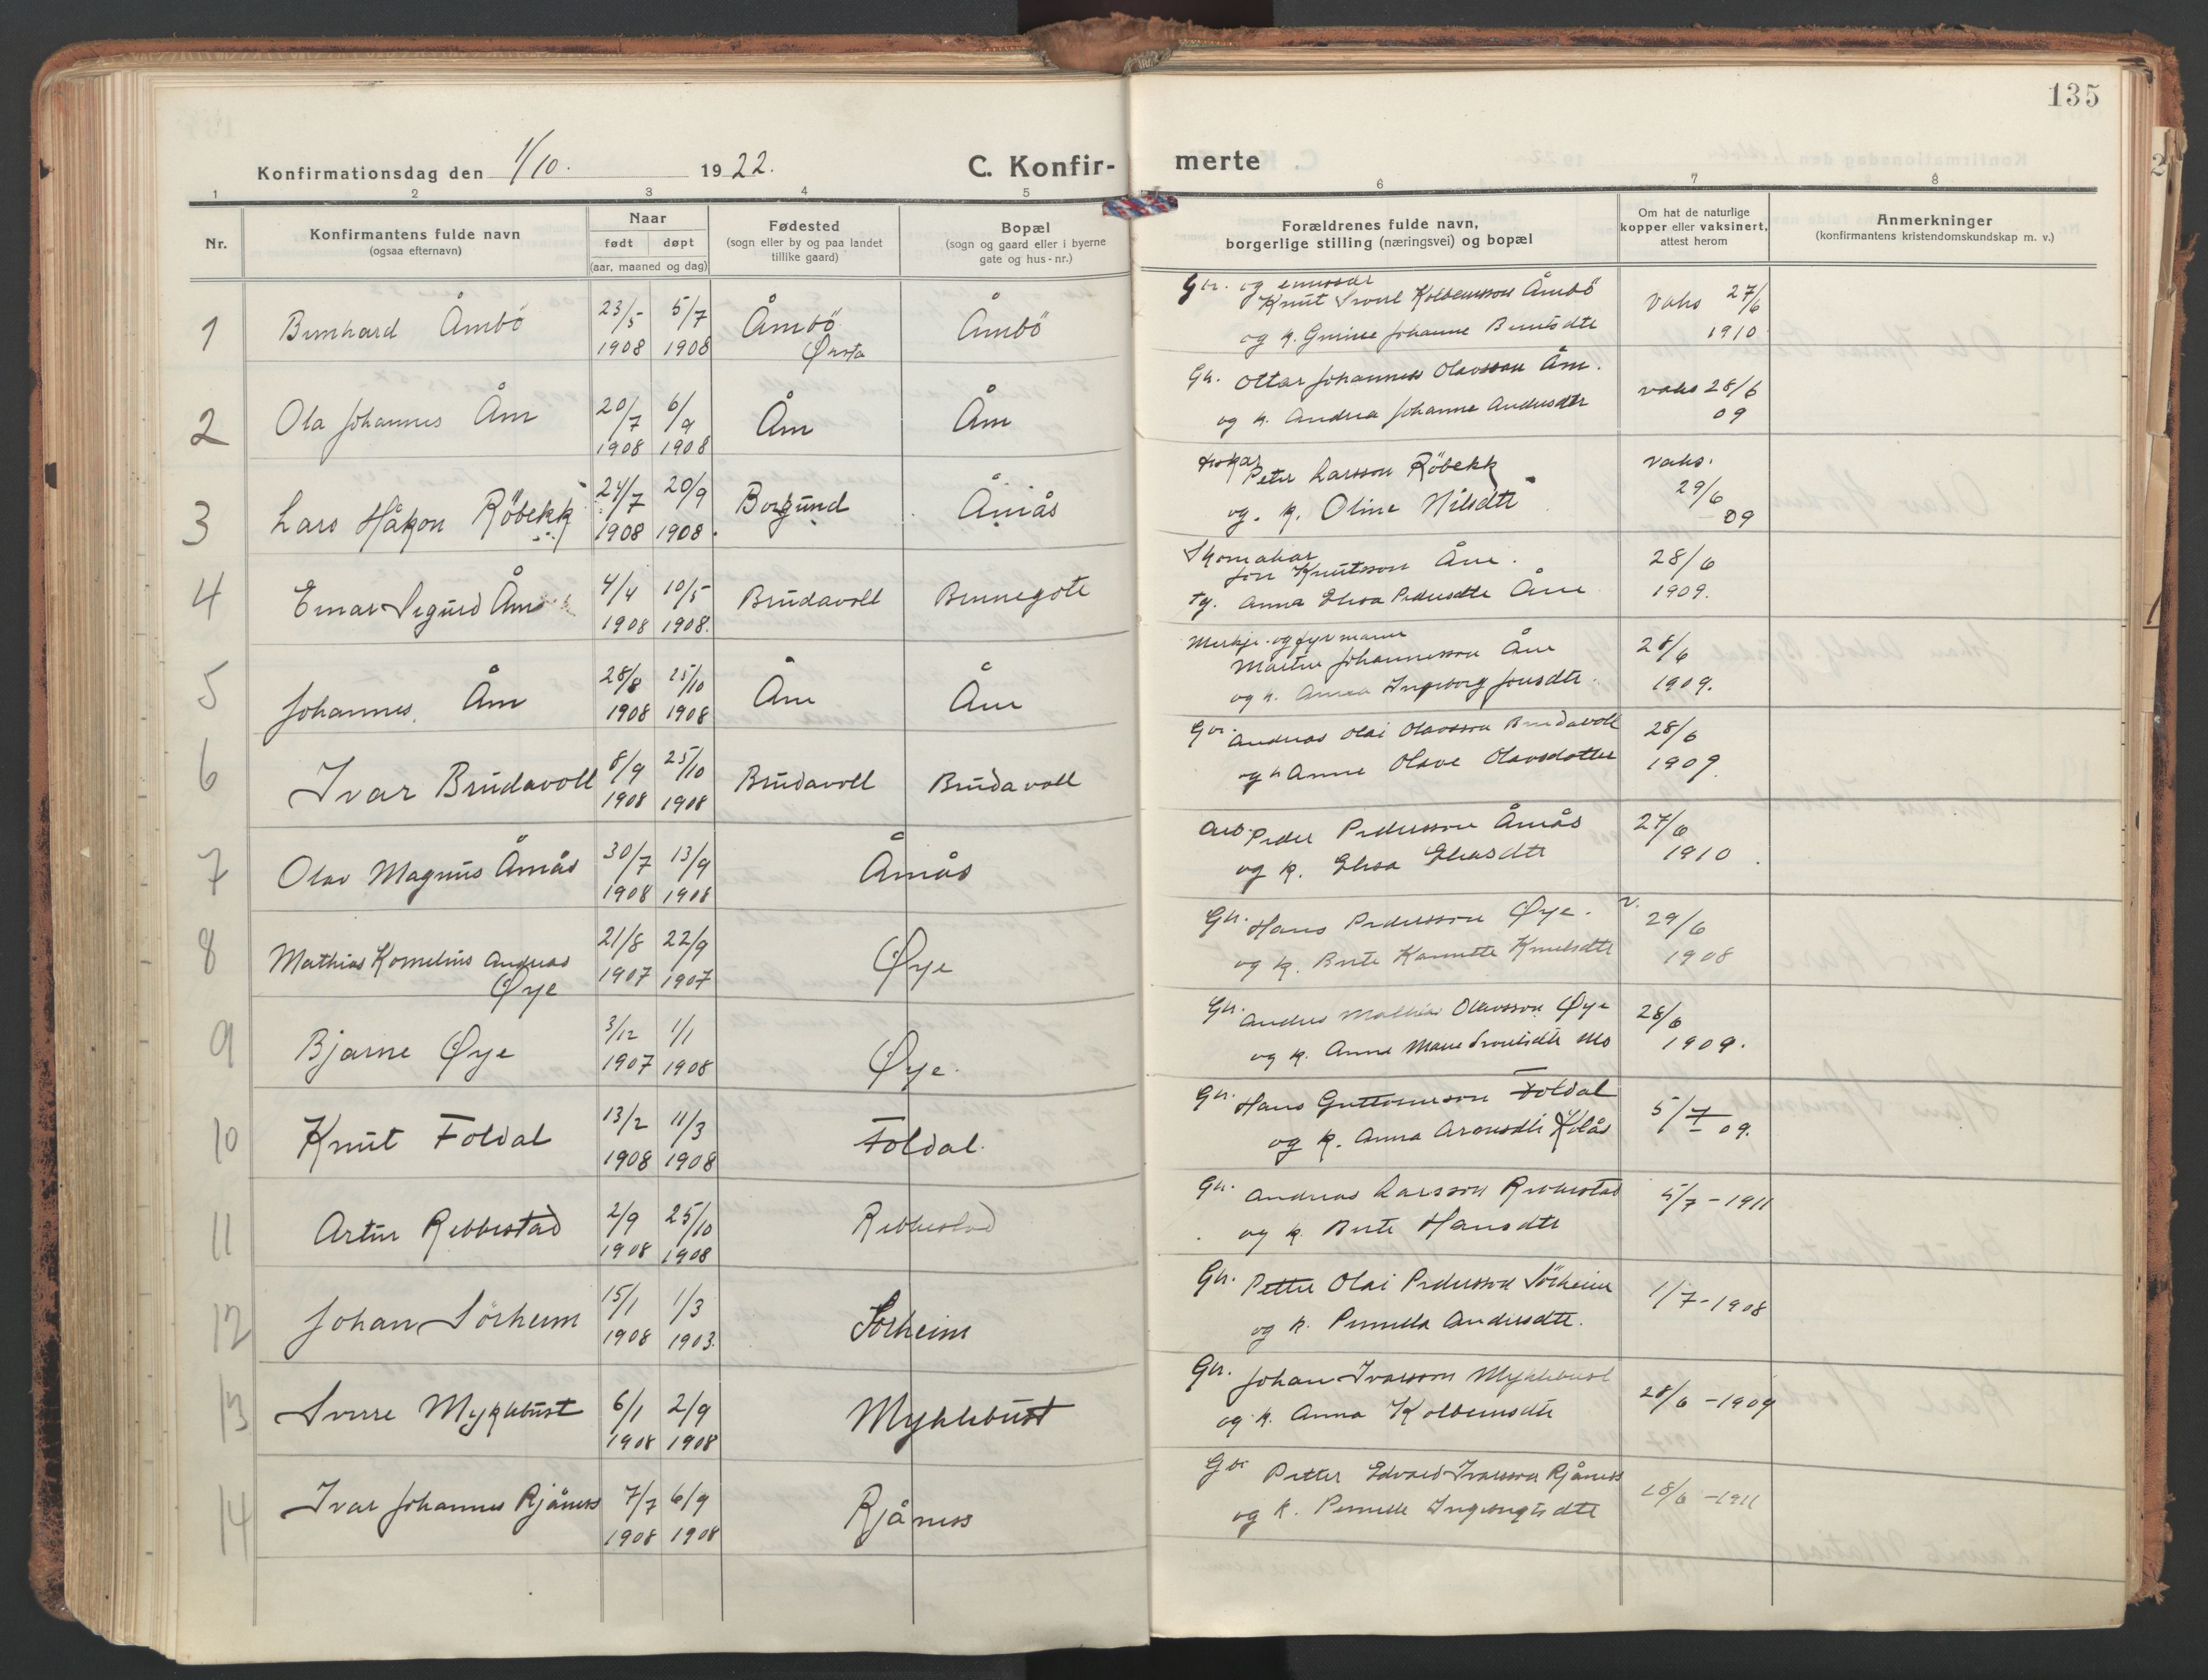 135
Konfirmationsdag den 1/10. 1922. C. Konfir-
merte
1 2 3 4 5 6 7 8
Nr.
Konfirmantens fulde navn
(ogsaa efternavn)
Naar
født døpt
(aar, maaned og dag)
Fødested
(sogn eller by og paa landet
tillike gaard)
Bopæl
(sogn og gaard eller i byerne
gate og hus-nr.)
Forældrenes fulde navn,
borgerlige stilling (næringsvei) og bopæl
Om hat de naturlige
kopper eller vaksinert,
attest herom
Anmerkninger
(konfirmantens kristendomskundskap m. v.)
1 Bernhard Åmbö 23/5 1908 5/7 1908 Åmbö Ørsta Åmbö
Gbr. og
Knut Sivert Kolbeinsson Åmbö
og k. Johanne Berntsdtr
Vaks 27/6
1910
2 Ola Johannes Åm 20/7 1908 6/9 1908 Åm Åm
Gbr. Ottar Johannes Olavsson Åm.
og k. Andrea Johanne Andersdtr
vaks 28/6
09
3 Lars Håkon Röbekk 24/7 1908 20/9 1908. Borgund Åmås
Peter Larsson Röbekk
og. k. Oline Nilsdtr
vaks.
29/6
09
4 Einar Sigurd Åm 4/4 1908 10/5 1908. Brudavoll Brunegote
Skomakar
Jon Knutsson Åm.
Anna Elisa Pedersdtr Åm
28/6
1909.
5 Johannes Åm 28/8 1908 25/10 1908 Åm Åm
Merkje- og fyrmann
Martin Johannesson Åm
og k. Anna Ingeborg Jonsdtr.
28/6
1909.
6 Ivar Brudavoll 8/9 1908 25/10 1908 Brudavoll Brudavoll
Gbr. Andreas Olai Olavsson Brudavoll
og k Anne Olave Olavsdotter
28/6
1909.
7 Olav Magnus Åmås 30/7 1908 13/9 1908 Åmås
Arb. Peder Pedersson Åmås
og k. Elisa Eliasdtr
27/6
1910
8 Mathias Kornelius Andreas
Øye 21/8 1907 22/9 1907 Øye
Gbr. Hans Pedersson Øye.
og k. Berte Karnette Knutsdtr
v. 29/6
1908
9 Bjarne Øye 3/12 1907 1/1 1908 Øye.
Gbr. Anders Mathias Olavsson Øye
og k. Anne Marie Sivertsdtr Mo
28/6
1909.
10 Knut Foldal 13/2 1908 11/3 1908 Foldal.
Gbr. Hans Guttormsson Foldal
og k. Anna Aronsdtr Kolås
5/7 09.
11 Artur Rebbestad 2/9 1908 25/10 1908 Rebbestad
Gbr. Andreas Larsson Rebbestad
og k. Berte Hansdtr
5/7 - 1911
12 Johan Sörheim 15/1 1908 1/3 1903. Sörheim
Gbr. Petter Olai Pedersson Sörheim
og k. Pernella Andersdtr.
1/7 - 1908
13 Sverre Myklebust 6/1 1908 2/9 1908 Myklebust
Gbr. Johan Ivarsson Myklebust
og k. Anna Kolbeinsdtr
28/6 - 1909
14 Ivar Johannes Rjåness 7/7 1908 6/9 1908 Rjåness
Gbr Petter Edvard Ivarsson Rjåness
og k. Pernille Ingebrigtsdtr
28/6 - 1911